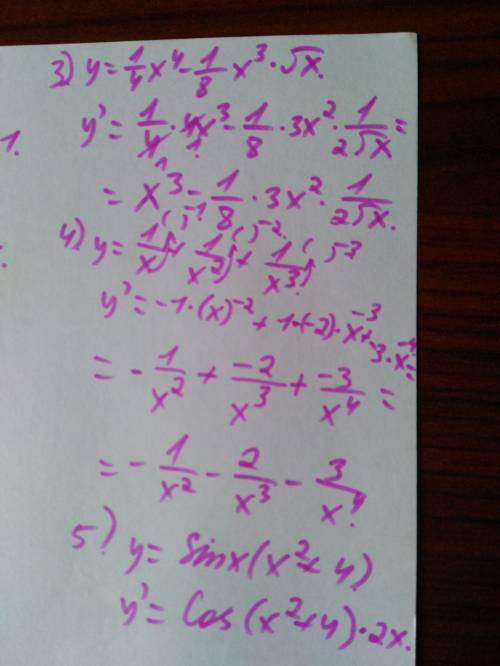 3) y = 1/4 x⁴ - 1/8 x³ · √x.
1.
y' = 1/4 · 4x³ - 1/8 · 3x² · 1/2√x =
= x³ - 1/8 · 3x² · 1/2√x.
4) y = 1/x ( )⁻¹ + 1/x² ( )⁻² + 1/x³ ( )⁻³
y' = -1 · (x)⁻² + 1·(-2) · x⁻³ + -3 · x⁻⁴ =
= - 1/x² + -2/x³ + -3/x⁴ =
= - 1/x² - 2/x³ - 3/x⁴.
5) y = Sinx(x² + 4)
y' = Cos(x² + 4) · 2x.